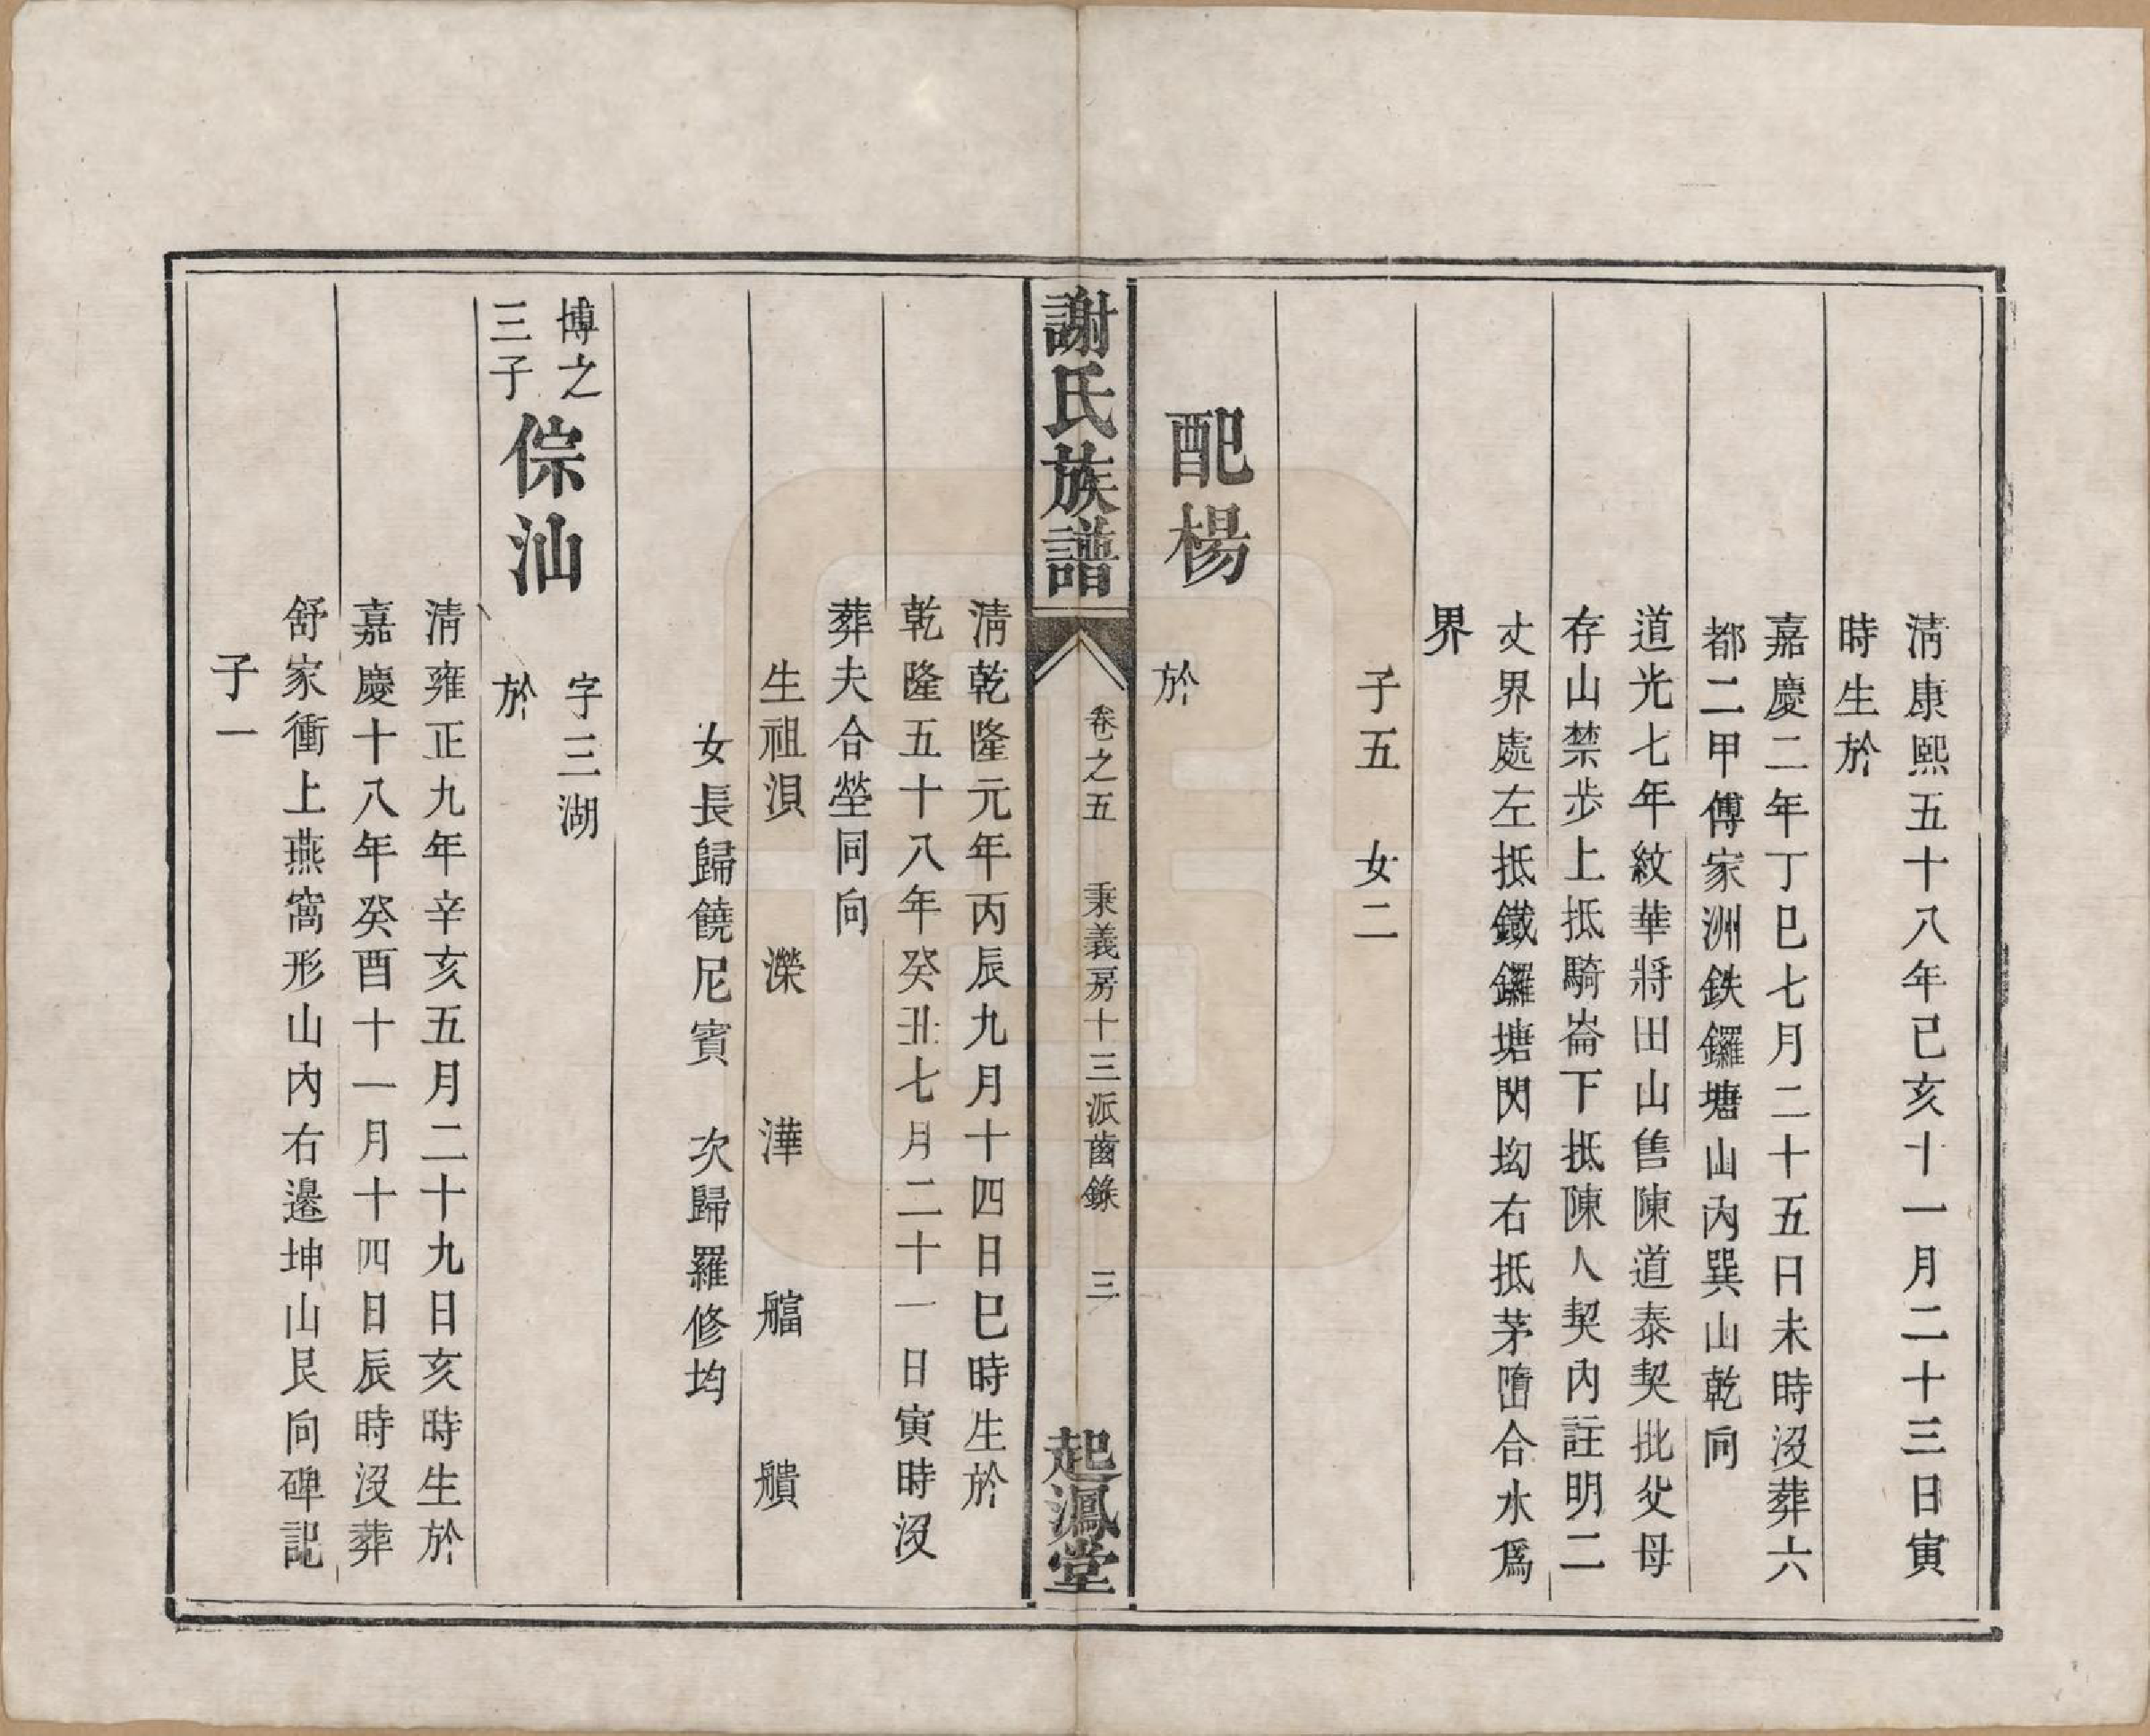 淸康熙五十八年己亥十一月二十三日寅
時生於
嘉慶二年丁巳七月二十五日未時沒葬六
都二甲傅家洲鉄鑼塘山內巽山乾向
道光七年紋華將田山售陳道泰契批父母
存山禁步上抵騎崙下抵陳人契內註明二
丈界處左抵鐵鑼塘閃㘭右抵茅𡺾合水爲
界
子五 女二
配楊
於
謝氏族譜 卷之五 秉義房十三派齒錄 三 起鳳堂
淸乾隆元年丙辰九月十四日巳時生於
乾隆五十八年癸丑七月二十一日寅時沒
葬夫合塋同向
生祖浿 濼 澕 艑 艜
女長歸饒尼賓 次歸羅修均
博之
三子
倧汕
字三湖
於
淸雍正九年辛亥五月二十九日亥時生於
嘉慶十八年癸酉十一月十四日辰時沒葬
舒家衝上燕窩形山內右邊坤山艮向碑記
子一